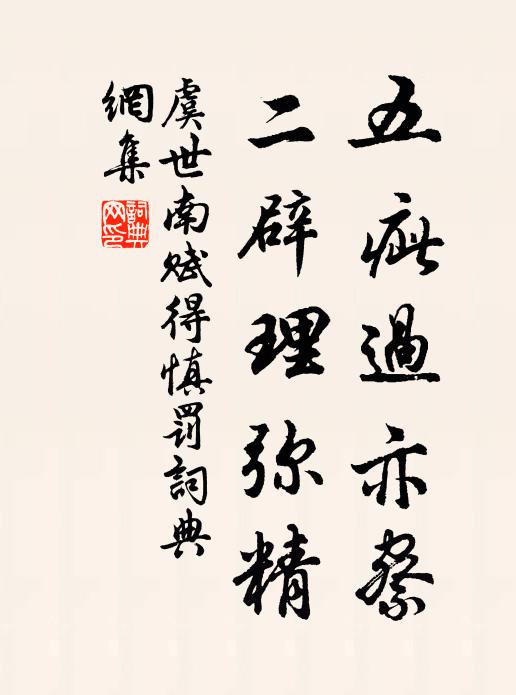 五疵過亦察
二辟理弥精
虞世南賦得慎罰詞典
網集
詞典
网印